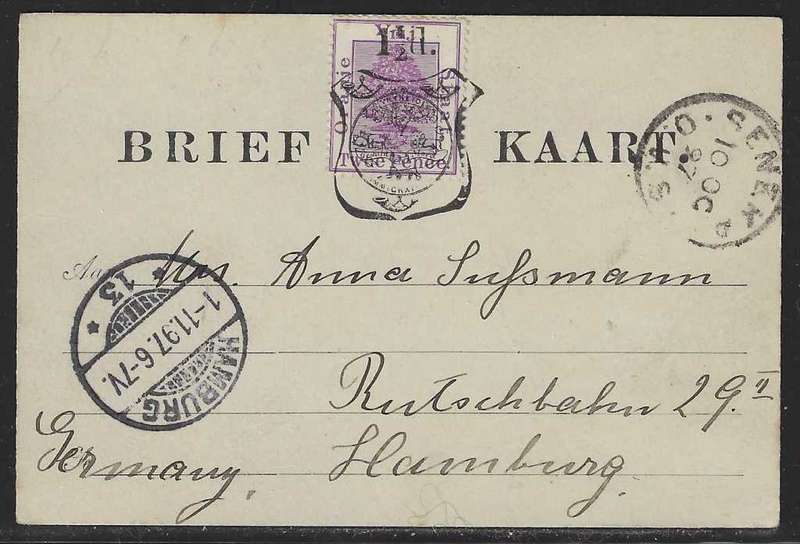 1½d.
Oranje Vrij Staat
Twee Pence.
BRIEF KAART.
SENEKAL
10 OC
97
Aan Mrs. Anna Sußmann
HAMBURG
1-11.97. 6-7N.
* 13 *
Rutschbahn 29. II
Germany, Hamburg.